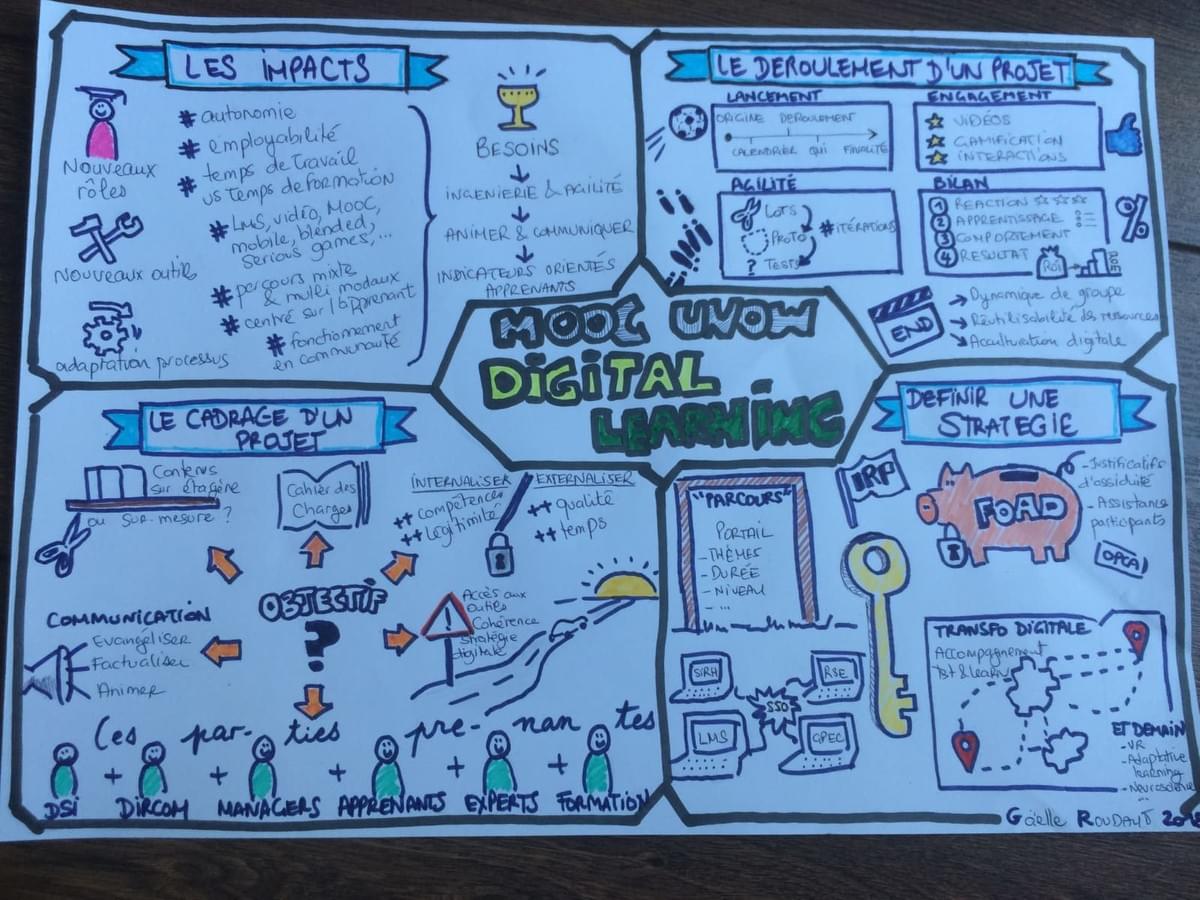 LES IMPACTS
Nouveaux
rôles
Nouveaux outils
adaptation processus
# autonomie
# employabilité
# temps de travail
vs temps de formation
# LMS, vidéo, MOOC,
mobile, blended,
serious games,...
# parcours mixte
& multi modaux
# centré sur l'apprenant
# fonctionement
en communauté
BESOINS
INGENIERIE & AGILITÉ
ANIMER & COMMUNIQUER
INDICATEURS ORIENTÉS
APPRENANTS
LE DEROULEMENT D'UN PROJET
LANCEMENT
ORIGINE DEROULEMENT
CALENDRIER QUI FINALITÉ
ENGAGEMENT
VIDÉOS
GAMIFICATION
INTERACTIONS
AGILITÉ
LOTS
PROTO
? TESTS
# ITÉRATIONS
BILAN
1 REACTION
2 APPRENTISSAGE
3 COMPORTEMENT
4 RESULTAT
ROI
ROE
%
END
Dynamique de groupe
Réutilisabilité des ressources
Acculturation digitale
MOOC UNOW
DIGITAL
LEARNING
LE CADRAGE D'UN
PROJET
Contenus
sur étagère
ou sur-mesure ?
Cahier des
Charges
INTERNALISER
++ compétences
++ légitimité
EXTERNALISER
++ qualité
++ temps
OBJECTIF
?
COMMUNICATION
Evangéliser
Factualiser
Animer
!
Accès aux
outils
Cohérence
stratégie
digitale
Les par- ties pre- nan tes
DSI + DIRCOM + MANAGERS + APPRENANTS + EXPERTS + FORMATION
DEFINIR UNE
STRATEGIE
"PARCOURS"
PORTAIL
- THÈMES
- DURÉE
- NIVEAU
- ...
IRP
FOAD
- Justificatifs
d'assiduité
- Assistance
participants
OPCA
SIRH
RSE
SSO
LMS
GPEC
TRANSFO DIGITALE
Accompagnement
Tst & learn
ET DEMAIN
- VR
- Adaptative
learning
- Neuroscience
...
Gaëlle ROUDAUT